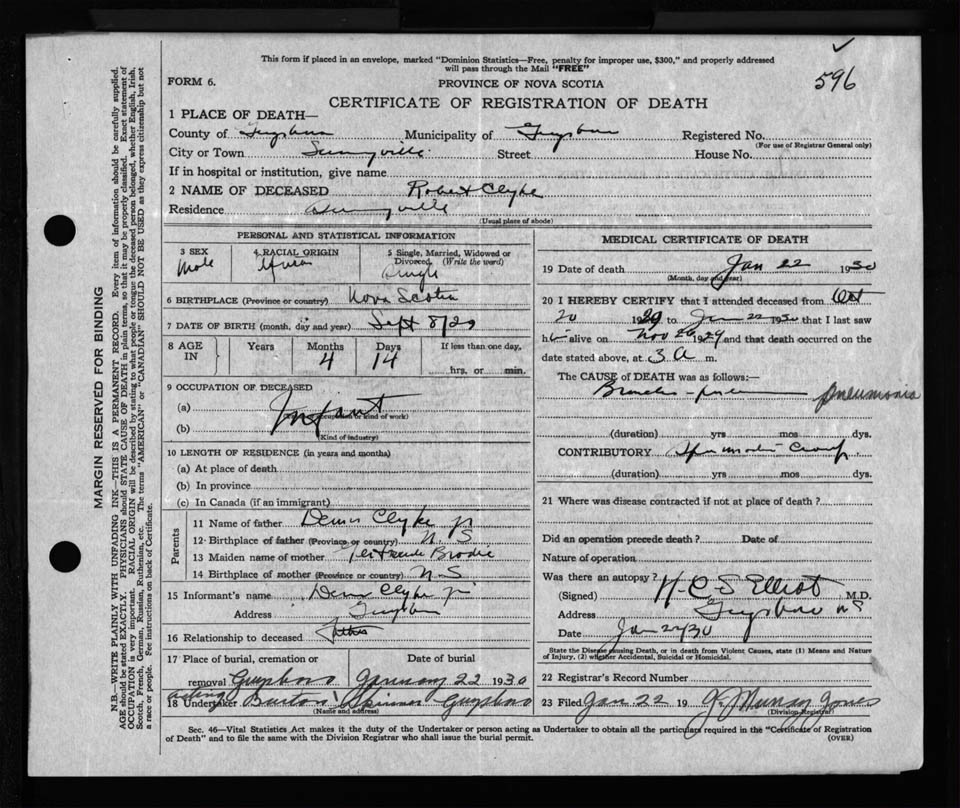 This form if placed in an envelope, marked "Dominion Statistics—Free, penalty for improper use, $300," and properly addressed
will pass through the Mail "FREE"
596
FORM 6.
PROVINCE OF NOVA SCOTIA
CERTIFICATE OF REGISTRATION OF DEATH
1 PLACE OF DEATH—
County of Guysboro Municipality of Guysboro Registered No.
(For use of Registrar General only)
City or Town Sunnyville Street House No.
If in hospital or institution, give name
2 NAME OF DECEASED Robert Clyke
Residence Sunnyville
(Usual place of abode)
PERSONAL AND STATISTICAL INFORMATION
3 SEX
Male
4 RACIAL ORIGIN
African
5 Single, Married, Widowed or
Divorced (Write the word)
Single
6 BIRTHPLACE (Province or country) Nova Scotia
7 DATE OF BIRTH (month, day and year) Sept 8/29
8 AGE IN Years Months Days If less than one day,
4 14 hrs. or min.
9 OCCUPATION OF DECEASED
(a) Infant
(Occupation or kind of work)
(b)
(Kind of industry)
10 LENGTH OF RESIDENCE (in years and months)
(a) At place of death
(b) In province
(c) In Canada (if an immigrant)
Parents
11 Name of father Clyke jr
12 Birthplace of father (Province or country) N. S
13 Maiden name of mother Gertrude Brodie
14 Birthplace of mother (Province or country) N S
15 Informant's name Clyke jr
Address Guysboro
16 Relationship to deceased Father
17 Place of burial, cremation or Date of burial
removal Guysboro January 22 1930
acting
18 Undertaker Burton Skinner Guysboro
(Name and address)
MEDICAL CERTIFICATE OF DEATH
19 Date of death Jan 22 1930
(Month, day and year)
20 I HEREBY CERTIFY that I attended deceased from Oct
20 1929 to Jan 22 1930 that I last saw
him alive on Nov 20 1929 and that death occurred on the
date stated above, at 3 A m.
The CAUSE of DEATH was as follows:—
Broncho-pneumonia pneumonia
(duration) yrs mos dys.
CONTRIBUTORY Spasmodic Croup
(duration) yrs. mos. dys.
21 Where was disease contracted if not at place of death?
Did an operation precede death? Date of
Nature of operation
Was there an autopsy?
(Signed) H C S Elliot M.D.
Address Guysboro NS
Date Jan 22/30
State the Disease causing Death, or in death from Violent Causes, state (1) Means and Nature
of Injury, (2) whether Accidental, Suicidal or Homicidal.
22 Registrar's Record Number
23 Filed Jan 22 19 G. Murray Jones
(Division Registrar)
Sec. 46—Vital Statistics Act makes it the duty of the Undertaker or person acting as Undertaker to obtain all the particulars required in the "Certificate of Registration
of Death" and to file the same with the Division Registrar who shall issue the burial permit.
(OVER)
MARGIN RESERVED FOR BINDING
N.B.—WRITE PLAINLY WITH UNFADING INK—THIS IS A PERMANENT RECORD. Every item of information should be carefully supplied.
AGE should be stated EXACTLY. PHYSICIANS should STATE CAUSE OF DEATH in plain terms, so that it may be properly classified. Exact statement of
OCCUPATION is very important. RACIAL ORIGIN will be described by stating to what people or tongue the deceased person belonged, whether English, Irish,
Scotch, French, German, Russian, Ruthenian, etc. The terms "AMERICAN" or "CANADIAN" SHOULD NOT BE USED as they express citizenship but not
a race or people. See instructions on back of Certificate.